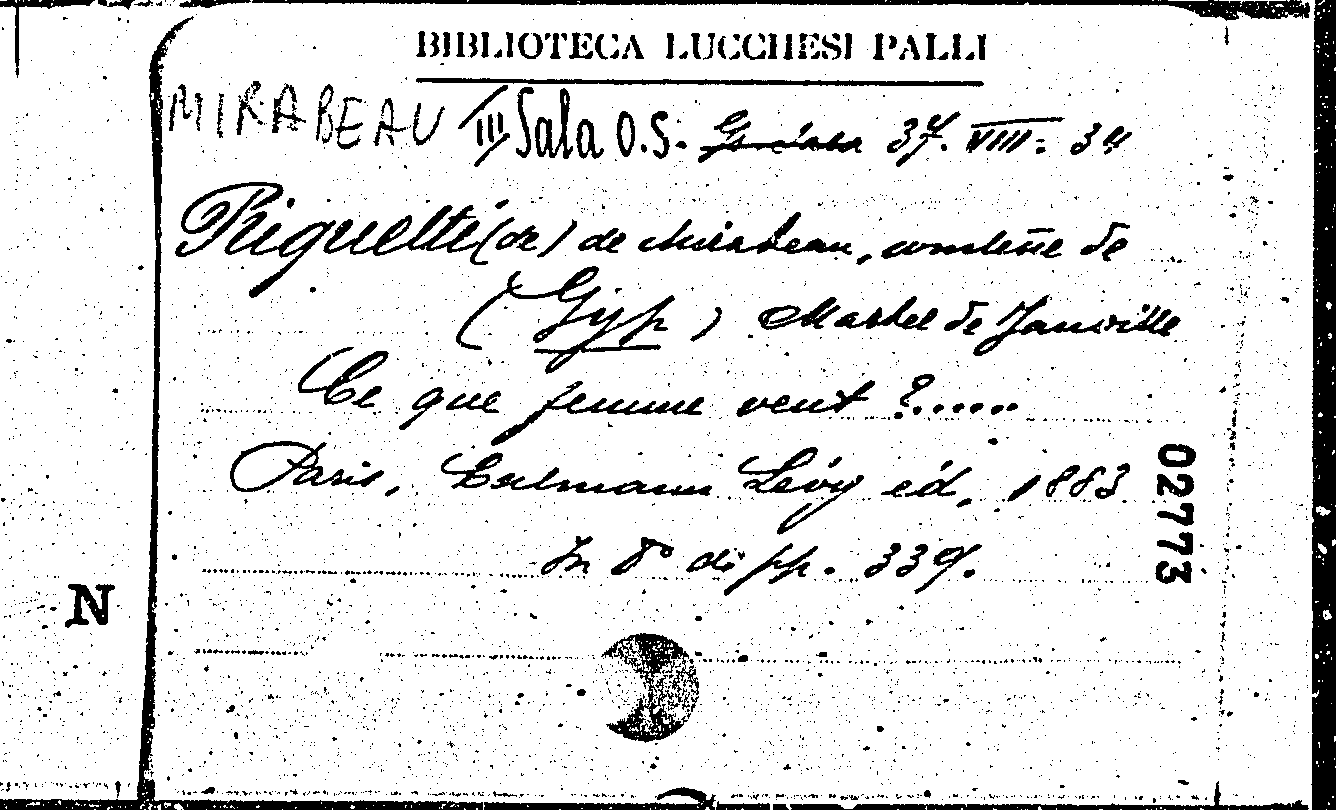 BIBLIOTECA LUCCHESI PALLI
MIRABEAU III Sala O.S. 37. VIII. 34
Riquetti (de) de Mirabeau, comtesse de
(Gyp) Martel de Janville
Ce que femme veut ?.....
Paris, Calmann Lévy éd, 1883
In 8° di pp. 339.
02773
N